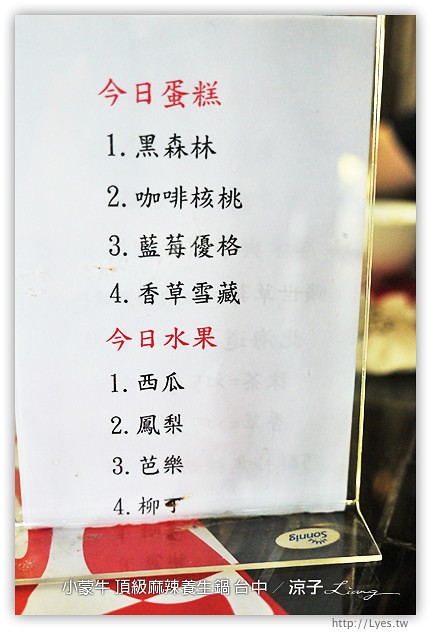 今日蛋糕
1. 黑森林
2. 咖啡核桃
3. 藍莓優格
4. 香草雪藏
今日水果
1. 西瓜
2. 鳳梨
3. 芭樂
4. 柳丁
Sonnig
小蒙牛 頂級麻辣養生鍋 台中 / 涼子 Liang
http://Lyes.tw